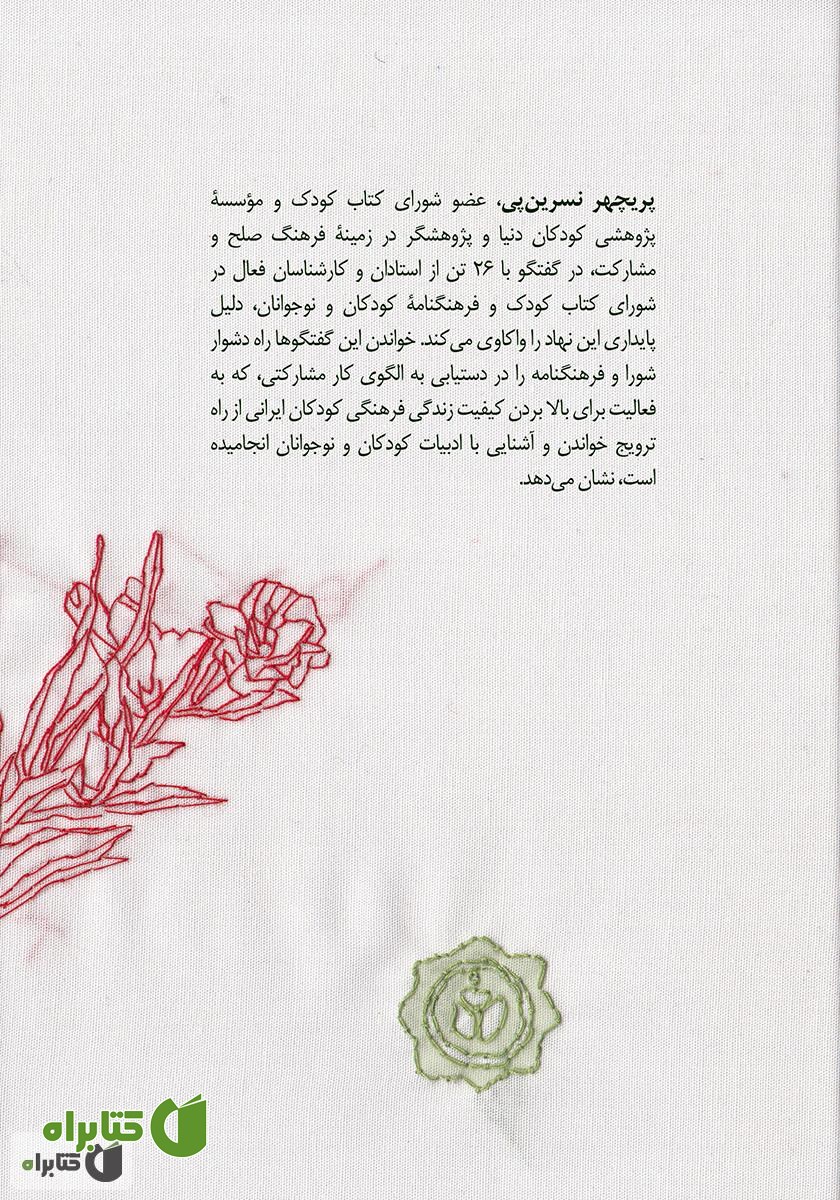 پریچهر نسرین‌پی، عضو شورای کتاب کودک و مؤسسهٔ
پژوهشی کودکان دنیا و پژوهشگر در زمینهٔ فرهنگ صلح و
مشارکت، در گفتگو با ۲۶ تن از استادان و کارشناسان فعال در
شورای کتاب کودک و فرهنگنامهٔ کودکان و نوجوانان، دلیل
پایداری این نهاد را واکاوی می‌کند. خواندن این گفتگوها راه دشوار
شورا و فرهنگنامه را در دستیابی به الگوی کار مشارکتی، که به
فعالیت برای بالا بردن کیفیت زندگی فرهنگی کودکان ایرانی از راه
ترویج خواندن و آشنایی با ادبیات کودکان و نوجوانان انجامیده
است، نشان می‌دهد.
کتابراه
کتابراه